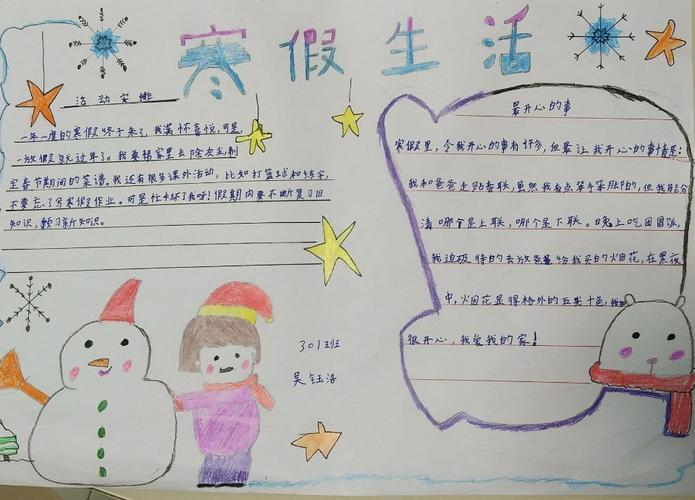 寒假生活
活动安排
一年一度的寒假终于来了,我满怀喜悦,可是
一放假就过年了。我要帮家里去除灰尘,制
定春节期间的菜谱。我还有很多课外活动,比如打篮球和练字,
不要忘了写寒假作业。可是忙坏了我呀!假期内要不断复习旧
知识,预习新知识。
301班
吴钰浩
最开心的事
寒假里,令我开心的事有许多,但最让我开心的事情是:
我和爸爸走贴春联,虽然我有点笨手笨脚的,但我能分
清哪个是上联,哪个是下联。晚上吃团圆饭,
我迫极待的去放爸爸给我买的烟花,在黑夜
中,烟花显得格外的五光十色,我
很开心,我爱我的家!